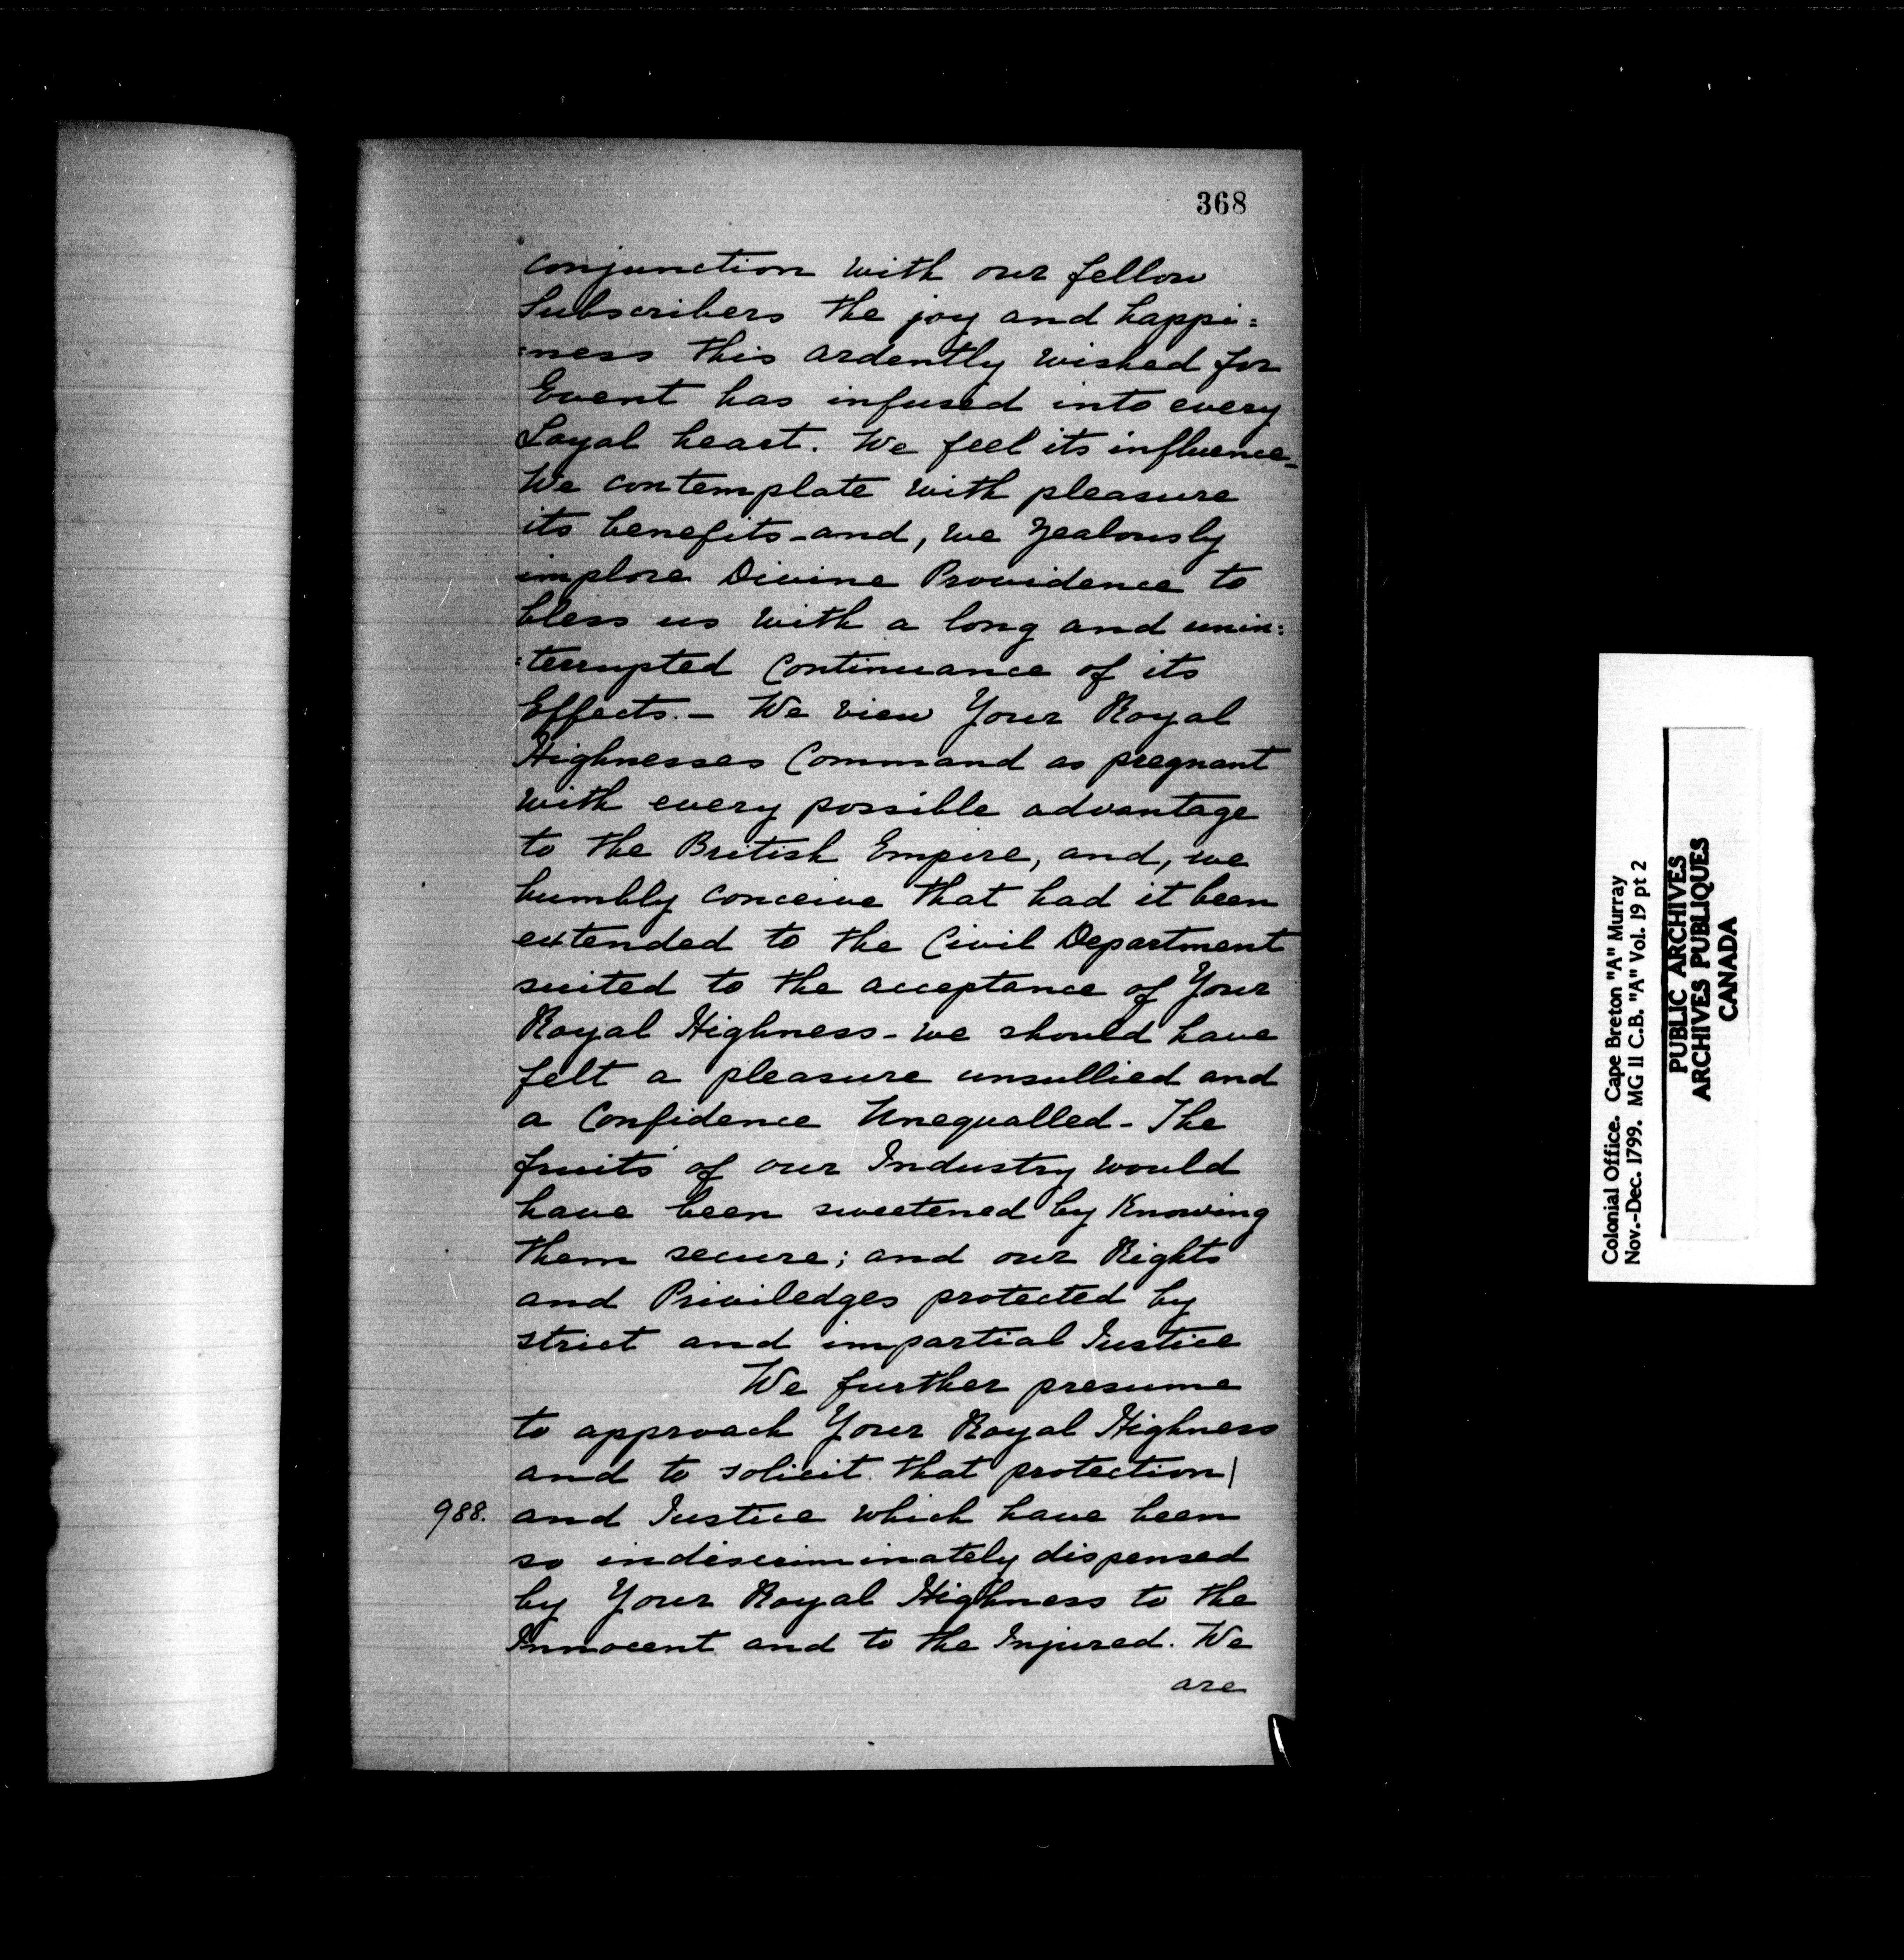 368
conjunction with our fellow
Subscribers the joy and happi=
=ness this ardently wished for
Event has infused into every
Loyal heart. We feel its influence_
We contemplate with pleasure
its benefits_and, we zealously
implore Divine Providence to
bless us with a long and unin=
=terrupted Continuance of its
Effects.— We view Your Royal
Highnesses Command as pregnant
with every possible advantage
to the British Empire, and, we
humbly conceive that had it been
extended to the Civil Department
suited to the acceptance of Your
Royal Highness - we should have
felt a pleasure unsullied and
a Confidence Unequalled - The
fruits of our Industry would
have been sweetened by Knowing
them secure; and our Rights
and Priviledges protected by
strict and impartial Justice
We further presume
to approach Your Royal Highness
and to solicit that protection|
988. and Justice which have been
so indiscriminately dispensed
by Your Royal Highness to the
Innocent and to the Injured. We
are
Colonial Office. Cape Breton "A" Murray
Nov.-Dec. 1799. MG 11 C.B. "A" Vol. 19 pt 2
PUBLIC ARCHIVES
ARCHIVES PUBLIQUES
CANADA